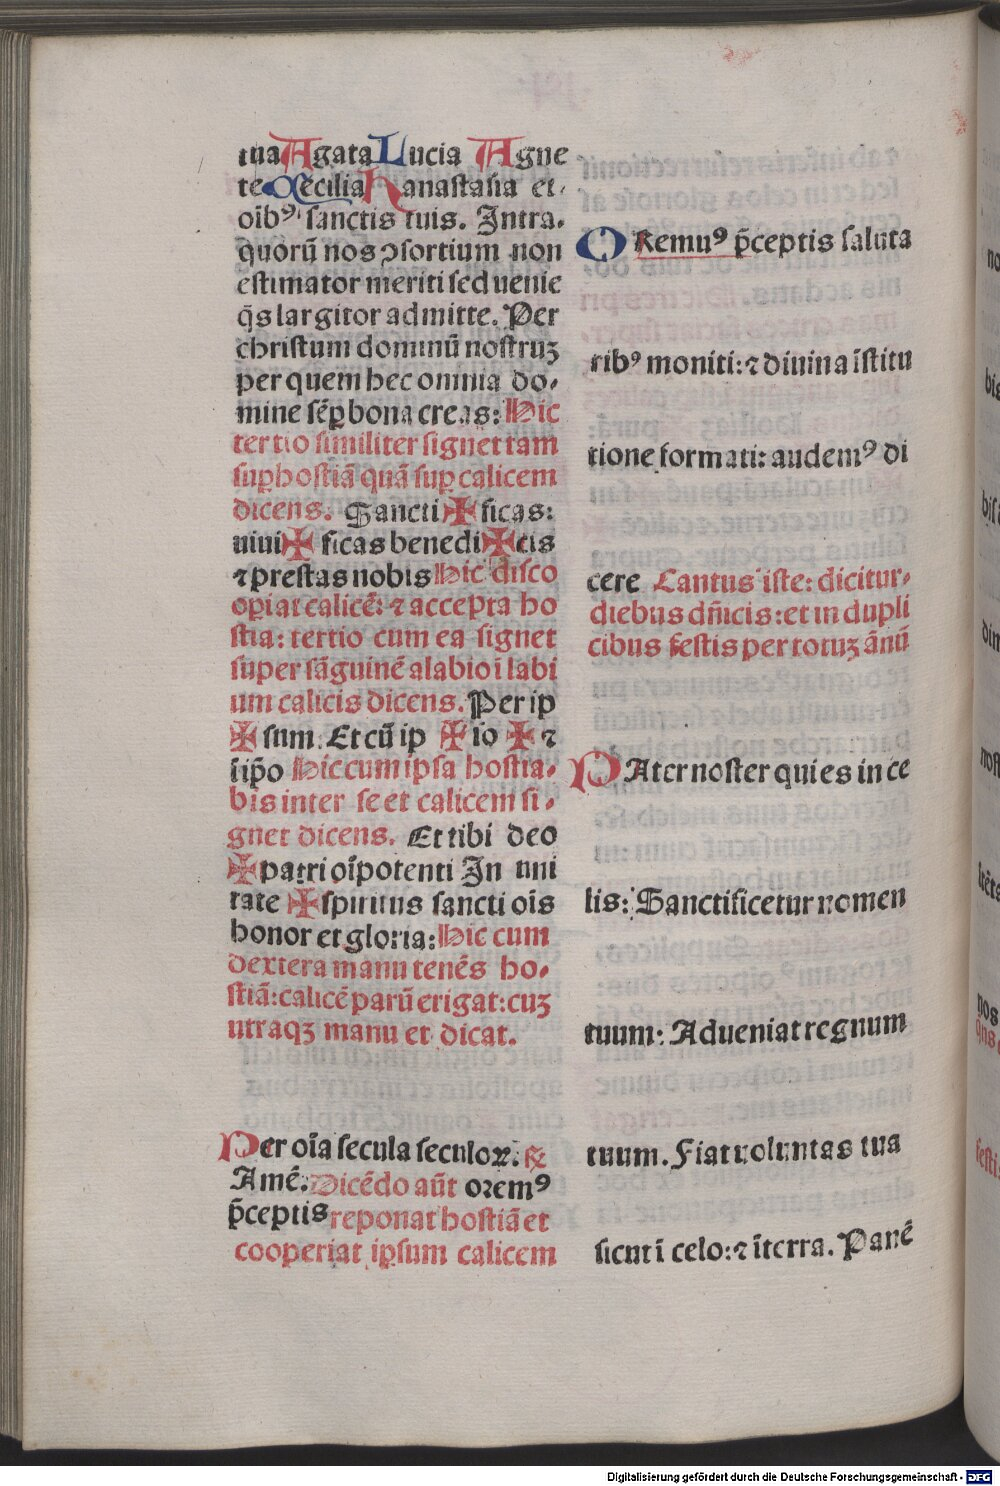 tua Agata Lucia Agne
te Cecilia Hanastasia et
oībꝰ sanctis tuis. Intra.
quorū nos ↄsortium non
estimator meriti sed uenie
q̄s largitor admitte. Per
christum dominū nostruʒ
per quem hec omnia do⸗
mine sēꝑ bona creas: Hic
tertio similiter signet tam
suꝑ hostiā quā suꝑ calicem
dicens. Sancti ✠ ficas:
uiui ✠ ficas benedi ✠ cis
⁊ prestas nobis Hic disco
opiat calicē: ⁊ accepta ho
stia: tertio cum ea signet
super sāguinē a labio ī labi
um calicis dicens. Per ip
✠ sum. Et cū ip ✠ so ✠ ⁊
ī ip̄o Hic cum ipsa hostia.
bis inter se et calicem si.
gnet dicens. Et tibi deo
✠ patri oīpotenti In uni
tate ✠ spiritus sancti oīs
honor et gloria: Hic cum
dextera manu tenēs ho.
stiā: calicē parū erigat: cuʒ
utraqʒ manu et dicat.
Per oīa secula seculoꝝ. ℟
Amē. Dicēdo aūt oremꝰ
p̄ceptis reponat hostiā et
cooperiat ipsum calicem
ORemuꝰ p̄ceptis saluta
ribꝰ moniti: ⁊ diuina īstitu
tione formati: audemꝰ di
cere Cantus iste: dicitur.
diebus dn̄icis: et in dupli
cibus festis per totuʒ ānū
PAter noster qui es in ce
lis: Sanctificetur nomen
tuum: Adueniat regnum
tuum. Fiat uoluntas tua
sicut ī celo: ⁊ ī terra. Panē
no
nos
Digitalisierung gefördert durch die Deutsche Forschungsgemeinschaft - DFG